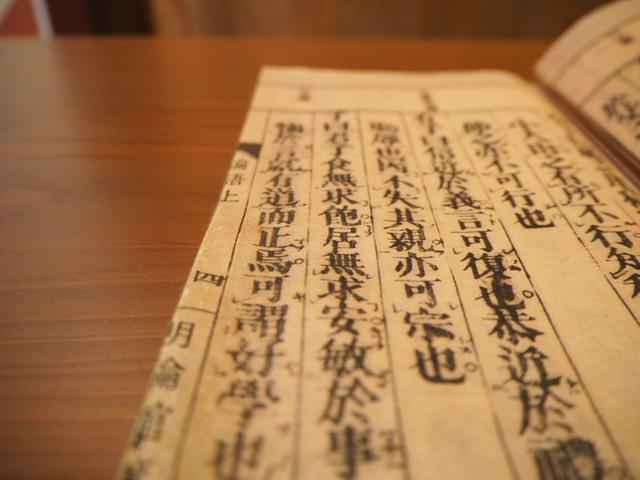 小大由之有所不行知
節之亦不可行也
有子曰信近於義言可復也恭近於禮
恥辱也因不失其親亦可宗也
子曰君子食無求飽居無求安敏於事
慎於言就有道而正焉可謂好學也
論語上 四 明倫館